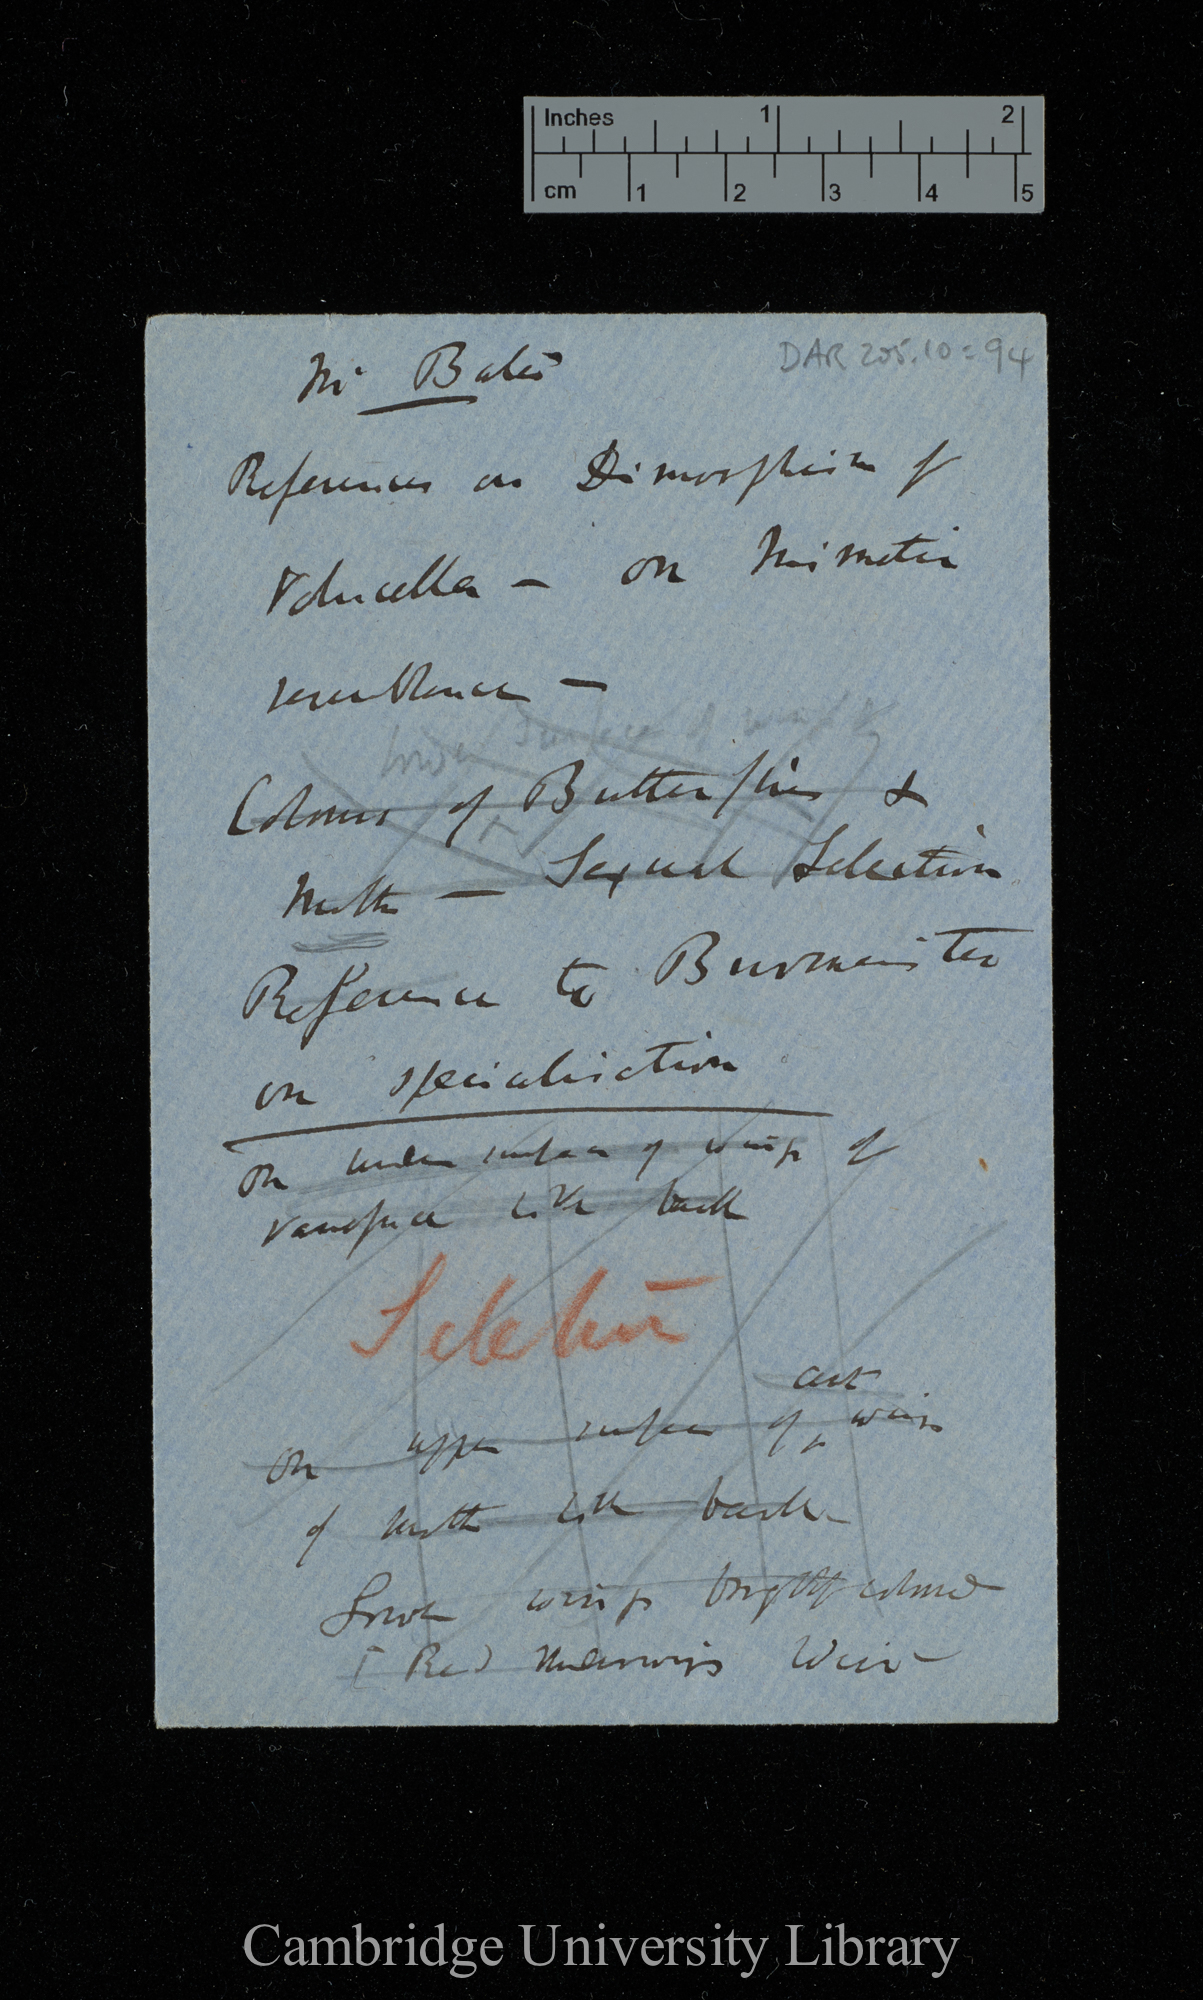 Inches 1 2
cm 1 2 3 4 5
DAR 205.10:94
Mr Bates
References on Dimorphism of
Volucella — on Mimetic
resemblance —
under surface of wings
Colours of Butterflies &
Moths — Sexual Selection
Reference to Burmeister
on specialisation
On under surface of wings of
Vanessa like bark
Selection
On upper surface of wings
of moth like bark
Lower wings brightly coloured
[Red Underwings Weir
Cambridge University Library